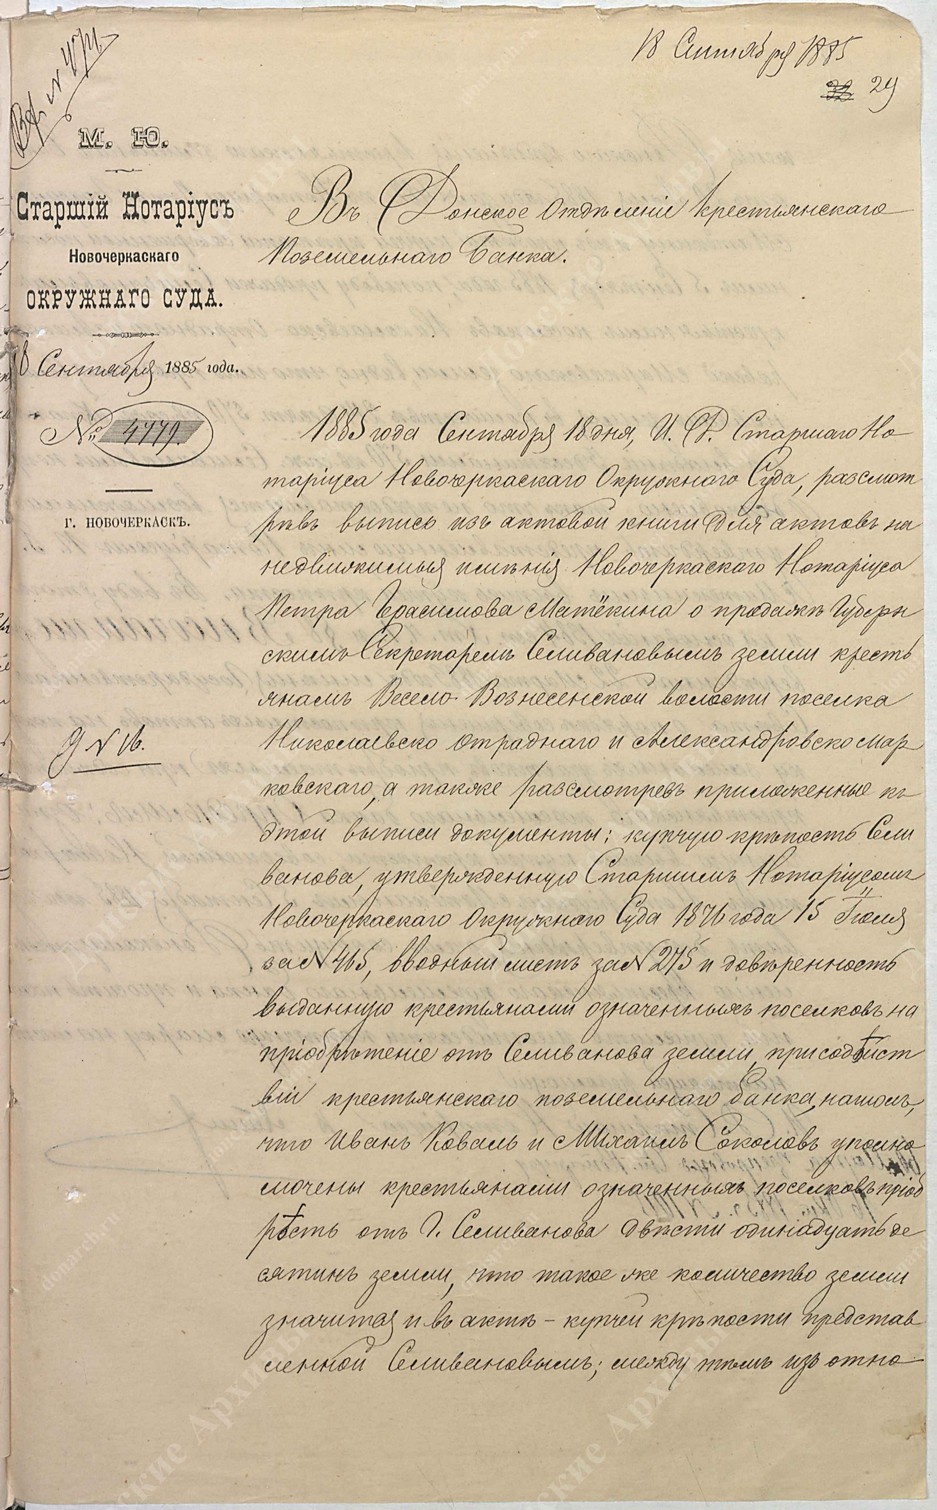 18 Сентября 1885
29
Вх. N 474
М. Ю.
Старшій Нотаріусъ
Новочеркаскаго
ОКРУЖНАГО СУДА.
18 Сентября 1885 года.
№ 4779.
Г. НОВОЧЕРКАСКЪ.
Д N 16.
Въ Донское Отдѣленіе Крестьянскаго
Поземельнаго Банка.
1885 года Сентября 18 дня, И. Д. Старшаго Но
таріуса Новочеркаскаго Окружнаго Суда, разсмот
рѣвъ выпись изъ актовой книги для актовъ на
недвижимыя имѣнія Новочеркаскаго Нотаріуса
Петра Герасимова Матёкина о продажѣ Губерн
скимъ Секретаремъ Селивановымъ земли кресть
янамъ Весело-Вознесенской волости поселка
Николаевско Отраднаго и Александровско мар
ковскаго, а также разсмотревъ приложенные къ
этой выписи документы: купчую крѣпость Сели
ванова, утвержденную Старшимъ Нотаріусомъ
Новочеркаскаго Окружнаго Суда 1876 года 15 Іюля
за N 465, вводный листъ за N 275 и довѣренность
выданную крестьянами означенныхъ поселковъ на
пріобрѣтеніе отъ Селиванова земли, присодѣйст
віи крестьянскаго поземельнаго банка, нашолъ,
что Иванъ Коваль и Михаилъ Соколовъ уполно
мочены крестьянами означенныхъ поселковъ пріоб
рѣсть отъ Г. Селиванова двѣсти одинадцать де
сятинъ земли, что такое же количество земли
значится и въ актѣ - купчей крѣпости представ
ленной Селивановымъ; между тѣмъ изъ отно-